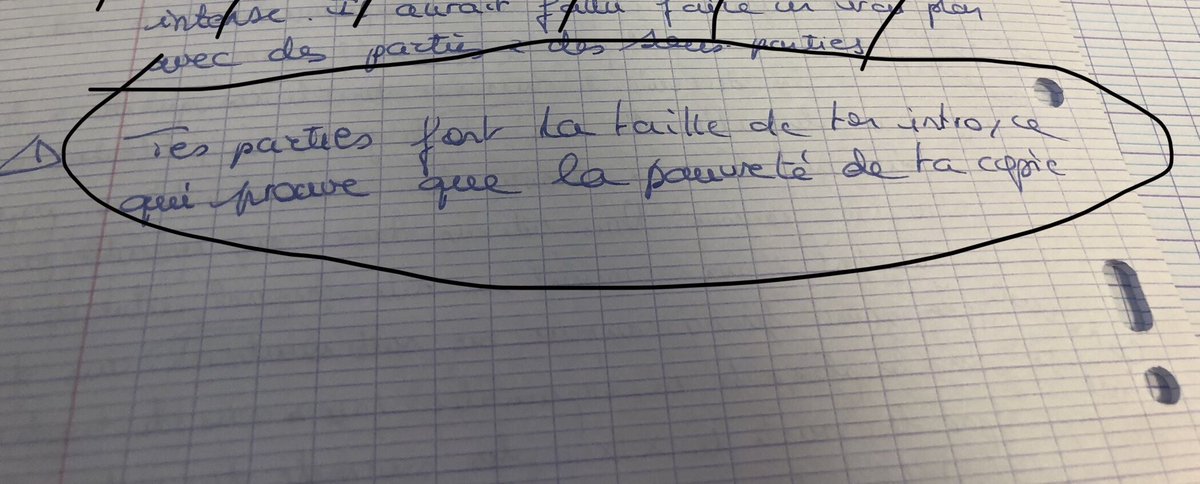 intense. Il aurait fallu faire un vrai plan
avec des partie - des sous parties
Tes parties font la taille de ton intro, ce
qui prouve que la pauvreté de ta copie